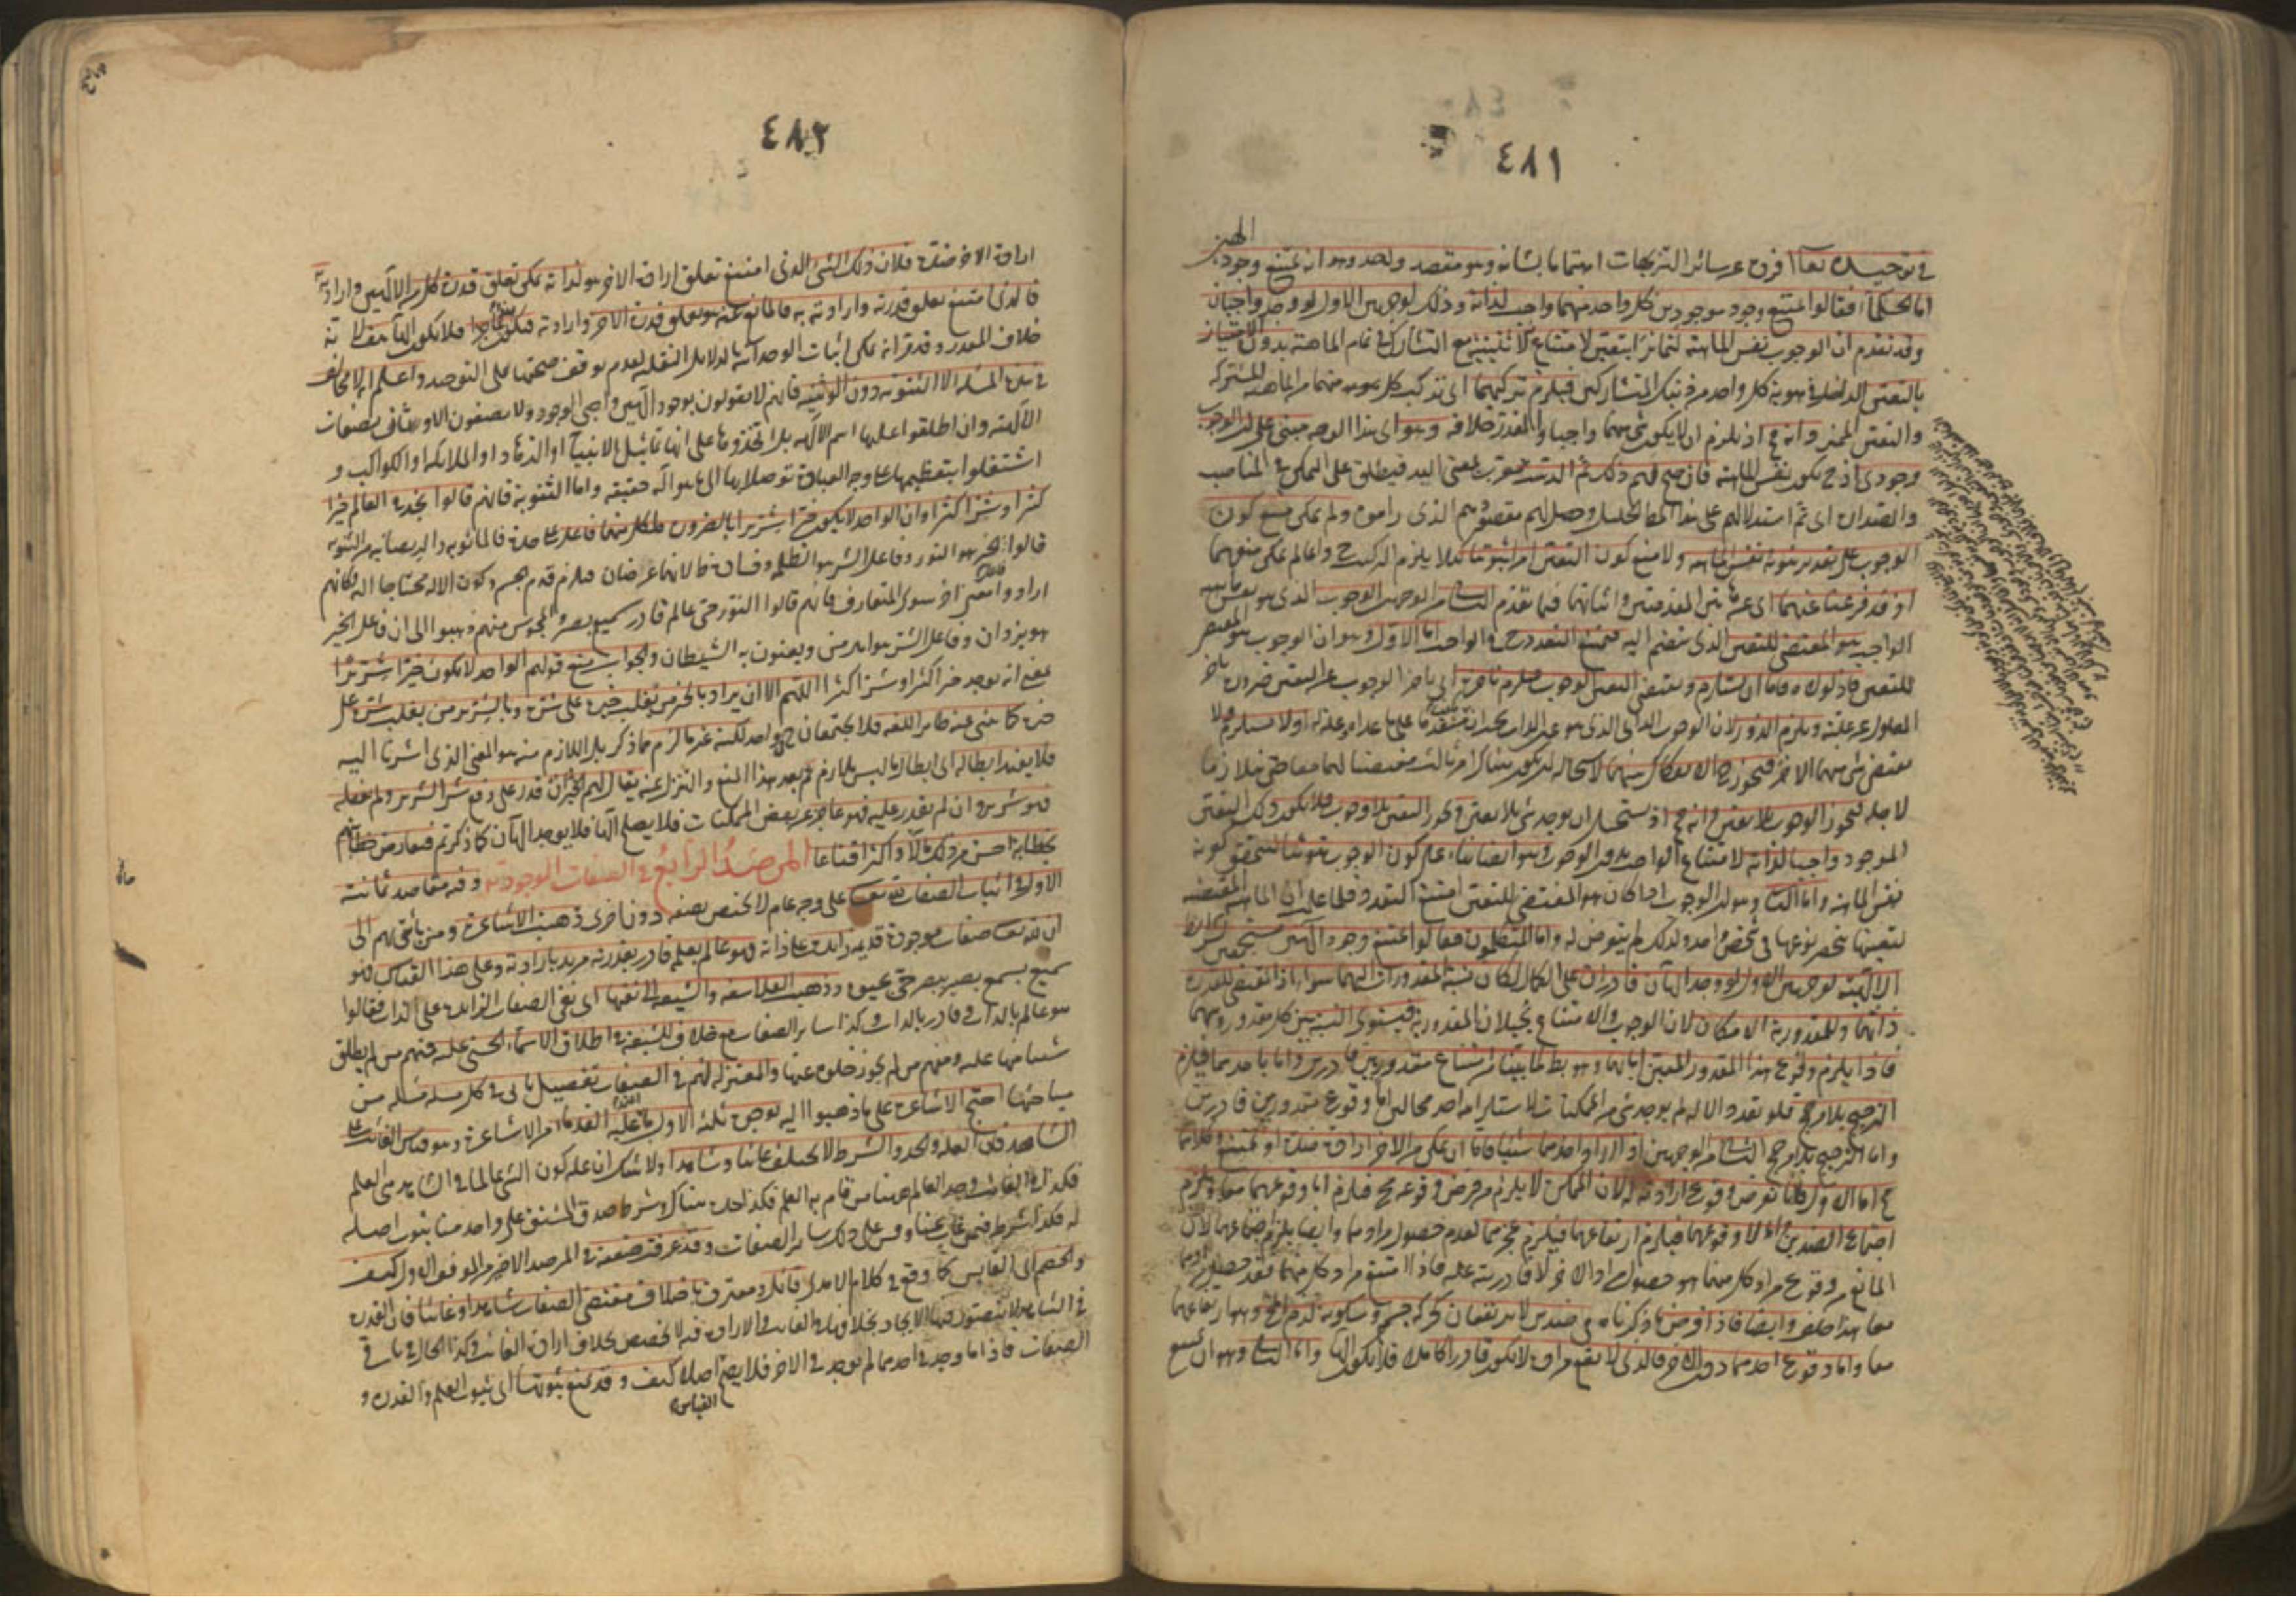 ٤٨١
الهين
في توحيده تعالى افرده عن سائر التنزيهات اهتماما بشانه وهو مقصد واحد وهو انه يمتنع وجود
اما الحكماء فقالوا يمتنع وجود موجودين كل واحد منهما واجب لذاته وذلك لوجهين الاول لو وجد واجبان
وقد تقدم ان الوجوب نفس الماهية لتمايزا بتعين لامتناع الاثنينية مع التشارك في تمام الماهية بدون الامتياز
بالتعين الداخل في هوية كل واحد من ذينك المتشاركين فيلزم تركبهما اي تركب كل منهما من الماهية المشتركة
والتعين المميز وانه مح اذ يلزم ان لا يكون شي منهما واجبا والمقدر خلافه وهو اي هذا الوجه مبني على ان الوجوب
وجودي اذ ح يكون نفس الماهية فان صح لهم ذلك تم الدست
والصدر اي تم استدلالهم على هذا المطلب الجليل وحصل لهم مقصودهم الذي راموه ولم يمكن منع كون
الوجوب على تقدير ثبوته نفس الماهية ولا منع كون التعين امرا ثبوتيا كيلا يلزم التركيب وانما لم يمكن منعهما
اذ قد فرغنا عنهما اي عن هاتين المقدمتين واثباتهما فيما تقدم الثاني من الوجهين الوجوب الذي هو نفس ماهية
الواجب هو المقتضي للتعين الذي ينضم اليه فيمتنع التعدد ح في الواجب اما الاول وهو ان الوجوب هو المقتضي
للتعين فاذ لولاه فاما ان يستلزم ويقتضي التعين الوجوب فيلزم تاخره اي تاخر الوجوب عن التعين ضرورة تاخر
المعلول عن علته ويلزم الدور لان الوجوب الذاتي الذي هو عين الذات يجب ان يكون متقدما على ما عداه وعلة له او لا يستلزم ولا
يقتضي شي منهما الاخر فيجوز ح الانفكاك بينهما
لاجله فيجوز الوجوب بلا تعين وانه مح اذ يستحيل ان يوجد شي بلا تعين ويجوز التعين بلا وجوب فلا يكون ذلك التعين
الموجود واجبا لذاته لامتناع الواجب بدون الوجوب وهو ايضا بناء على كون الوجوب ثبوتيا لتحقق كونه
نفس الماهية واما الثاني وهو ان الوجوب اذا كان هو المقتضي للتعين امتنع التعدد فلما علم ان الماهية المقتضية
لتعينها ينحصر نوعها في شخص واحد ولذلك لم يتعرض له واما المتكلمون فقالوا يمتنع وجود الهين مستجمعين لشرائط
الالهية لوجهين الاول لو وجد الهان قادران على الكمال لكان نسبة المقدورات اليهما سواء اذ المقتضي للقدرة
ذاتهما وللمقدورية الامكان لان الوجوب والامتناع يحيلان المقدورية فيستوي النسبة بين كل مقدور وبينهما
فاذا يلزم وقوع هذا المقدور المعين اما بهما وهو بط لما بينا من امتناع مقدور بين قادرين واما باحدهما فيلزم
الترجيح بلا مرجح فلو تعدد الاله لم يوجد شي من الممكنات لاستلزامه احد محالين اما وقوع مقدور بين قادرين
واما الترجيح بلا مرجح الثاني من الوجهين اذا اراد احدهما شيئا فاما ان يمكن من الاخر ارادة ضده او يمتنع وكلاهما
مح اما الاول فلانا نفرض وقوع ارادته له لان الممكن لا يلزم من فرض وقوعه مح فيلزم اما وقوعهما معا فيلزم
اجتماع الضدين واما لا وقوعهما فيلزم ارتفاعهما فيلزم عجزهما لعدم حصول مرادهما وايضا يلزم اجتماعهما لان
المانع من وقوع مراد كل منهما هو حصول مراد الاخر لا قادريته عليه فاذا امتنع مراد كل منهما فقد حصل مرادهما
معا هذا خلف وايضا فاذا فرض ما ذكرناه في ضدين لا يرتفعان كحركة جسم وسكونه لزم المح وهو ارتفاعهما
معا واما وقوع احدهما دون الاخر فالذي لا يقع مراده لا يكون قادرا كاملا فلا يكون الها واما الثاني وهو ان يمتنع
٤٨٢
ارادة الاخر ضده فلان ذلك الشي الذي امتنع تعلق ارادة الاخر هو لذاته يمكن تعلق قدرة كل من الالهين وارادته
فالذي امتنع تعلق قدرته وارادته به فالمانع عنه هو تعلق قدرة الاخر وارادته فيكون هذا عاجزا فلا يكون الها هف
خلاف المقدر وقد مر انه يمكن اثبات الوحدانية بالدلائل النقلية لعدم توقف صحتها على التوحيد واعلم انه لا مخالف
في هذه المسئلة الا الثنوية دون الوثنية فانهم لا يقولون بوجود الهين واجبي الوجود ولا يصفون الاوثان بصفات
الالهية وان اطلقوا عليها اسم الاله بل اتخذوها على انها تماثيل الانبياء او الزهاد او الملائكة او الكواكب و
اشتغلوا بتعظيمها على وجه العبادة توصلا بها الى ما هو اله حقيقة واما الثنوية فانهم قالوا نجد في العالم خيرا
كثيرا وشرا كثيرا وان الواحد لا يكون خيرا شريرا بالضرورة فلكل منهما فاعل على حدة فالمانوية والديصانية من الثنوية
قالوا فاعل الخير هو النور وفاعل الشر هو الظلمة وفساده ظ لانهما عرضان فيلزم قدم الجسم وكون الاله محتاجا اليه وكانهم
ارادوا معنى اخر سوى المتعارف فانهم قالوا النور حي عالم قادر سميع بصير والمجوس منهم ذهبوا الى ان فاعل الخير
هو يزدان وفاعل الشر هو اهرمن ويعنون به الشيطان والجواب منع قولهم الواحد لا يكون خيرا شريرا
بمعنى انه يوجد خيرا كثيرا وشرا كثيرا اللهم الا ان يراد بالخير من يغلب خيره على شره وبالشرير من يغلب شره على
خيره كما ينبئ عنه ظاهر اللغة فلا يجتمعان ح في واحد لكنه غير ما لزم مما ذكر بل اللازم منه هو المعنى الذي اشرنا اليه
فلا يفيد ابطاله اي ابطال ما ليس بلازم ثم بعد هذا المنع والتنزل عنه يقال لهم الخير ان قدر على دفع شر الشرير ولم يفعله
فهو شرير وان لم يقدر عليه فهو عاجز عن بعض الممكنات فلا يصلح الها فلا يوجد الهان كما ذكرتم فنعارض خطابتهم
بخطابة احسن من ذلك مالا واكثر اقناعا المرصد الرابع في الصفات الوجودية وفيه مقاصد ثمانية
الاول في اثبات الصفات لله تعالى على وجه عام لا يختص بصفة دون اخرى ذهبت الاشاعرة ومن تابعهم الى
ان لله تعالى صفات موجودة قديمة زائدة على ذاته فهو عالم بعلم قادر بقدرة مريد بارادة وعلى هذا القياس فهو
سميع بسمع بصير ببصر حي بحيوة وذهبت الفلاسفة والشيعة الى نفيها اي نفي الصفات الزائدة على الذات فقالوا
هو عالم بالذات وقادر بالذات وكذا سائر الصفات مع خلاف للشيعة في اطلاق الاسماء الحسنى عليه فمنهم من لم يطلق
شيئا منها عليه ومنهم من لم يجوز خلوه عنها والمعتزلة لهم في الصفات تفصيل ياتي في كل مسئلة مسئلة من
مباحثها احتج الاشاعرة على ما ذهبوا اليه بوجوه ثلثة الاول ما اعتمد عليه القدماء من الاشاعرة وهو قياس الغائب على
الشاهد فان العلة والحد والشرط لا يختلف غائبا وشاهدا ولا شك ان علة كون الشي عالما في الشاهد هي العلم
فكذا في الغائب وحد العالم ههنا من قام به العلم فكذا حده هناك وشرط صدق المشتق على واحد منا ثبوت اصله
له فكذا شرطه فيمن غاب عنا وقس على ذلك سائر الصفات وقد عرفت ضعفه في المرصد الاخير من الموقف الاول كيف
والخصم اي القائس كما وقع في كلام الامدي قائل ومعترف باختلاف مقتضى الصفات شاهدا وغائبا فان القدرة
في الشاهد لا يتصور فيها الايجاد بخلافها في الغائب والارادة فيه لا تخصص بخلاف ارادة الغائب وكذا الحال في باقي
الصفات فاذا ما وجد في احدهما لم يوجد في الاخر فلا يصح القياس اصلا كيف وقد يمنع ثبوتها اي ثبوت العلم والقدرة و